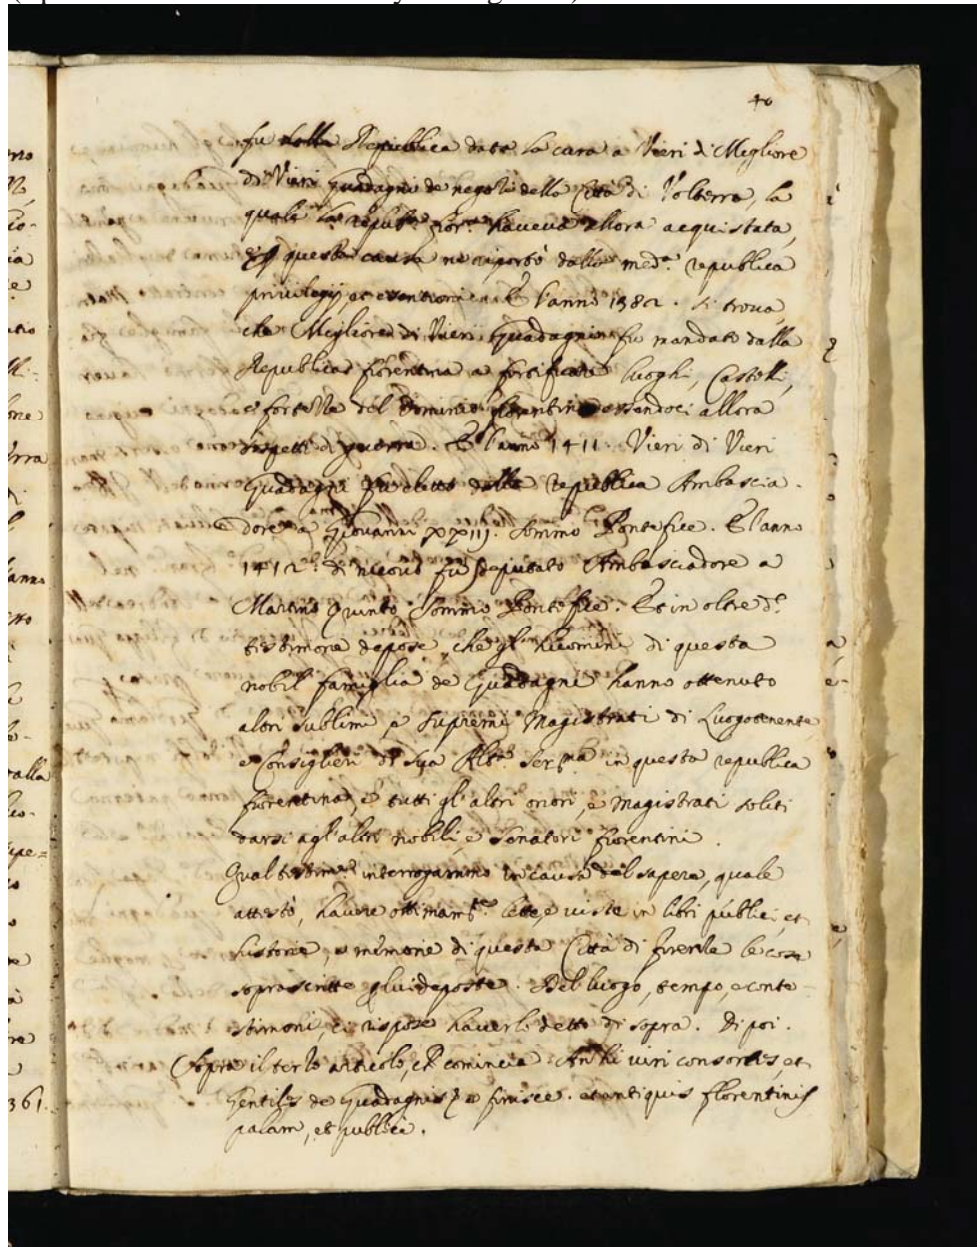 40
fu dalla Republica data la cura a Vieri di Migliore
di Vieri Guadagni de negozi della Città di Volterra, la
quale la republ.ca fior.na haveva allora acquistata,
questa causa ne riportò dalla med.a republica
privilegij et esentioni. E l'anno 1382. si trova,
che Migliore di Vieri Guadagni fu mandato dalla
Republica fiorentina a fortificare luoghi, Castelli,
e fortezze del Dominio fiorentino essendoci allora
sospetti di guerra. E l'anno 1411. Vieri di Vieri
Guadagni fu eletto dalla republica Ambascia-
dore a Giovanni XXIIJ. sommo Pontefice. E l'anno
di nuovo fu deputato Ambasciadore a
Martino Quinto Sommo Pontefice. Et in oltre d.o
testimone depose, che gl'huomini di questa
nobil famiglia de Guadagni hanno ottenuto
altri sublimi, e supremi Magistrati di Luogotenente,
e Consiglieri di Sua Alt.a Ser.ma in questa republica
fiorentina, e tutti gl'altri onori, e magistrati soliti
darsi agl'altri nobili, e Senatori fiorentini.
Qual interrogammo in causa del sapere, quale
attestò, havere ottimam.te lette, e viste in libri publici, et
historie, e memorie di questa Città di firenze le cose
soprascritte deposte. Del luogo, tempo, e conte-
stimoni, rispose haverlo detto di sopra. Dipoi.
Sopra il terzo articolo, comincia viri consortes, et
Gentiles de Guadagnis finisce. et antiquis florentinis
palam, et publice.
alla
361.